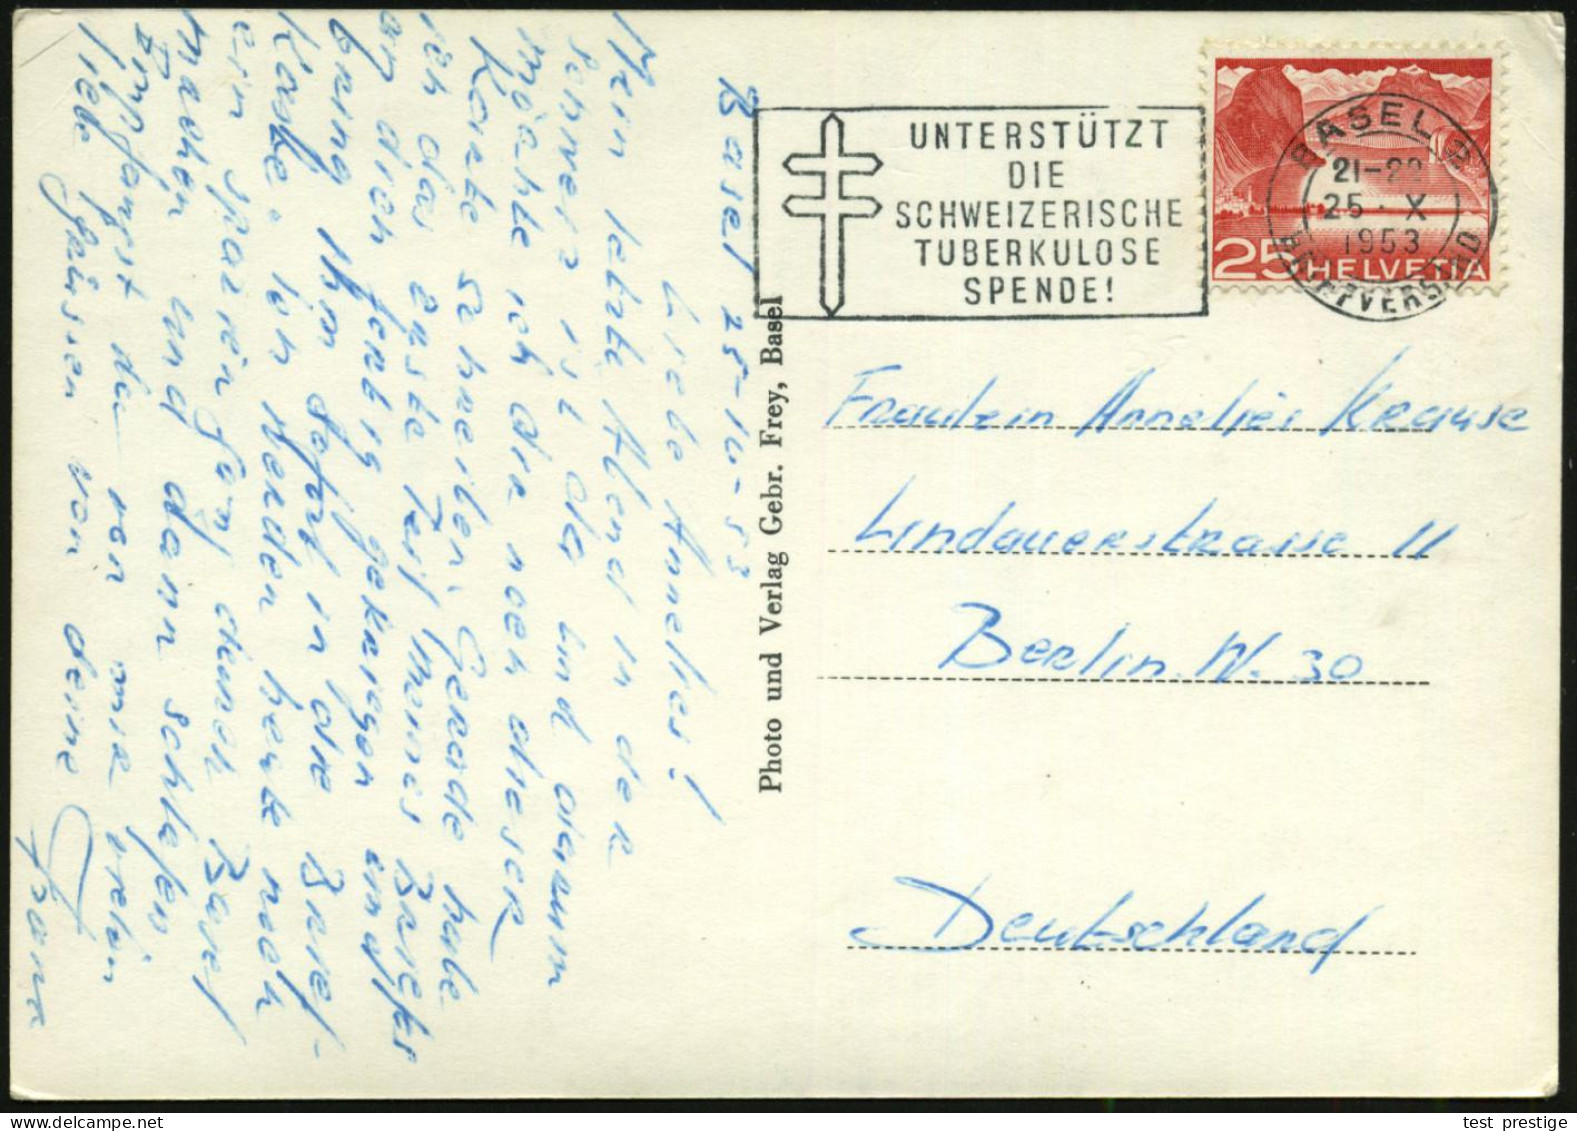 Basel 25-10-53
Liebe Annelies!
Mein letzte Abend in der
Schweiz ist da und darum
möchte ich dir noch dieser
Karte schreiben. Gerade habe
ich das erste Teil meines Briefes
an dich fertig gekriegen und
bring ihn sofort in die Brief-
kaste. Ich werden heute noch
ein spazierengang durch Basel
machen und dann schlafen
Empfangst du von mir vielen
liebe Grüssen von deine
UNTERSTÜTZT
DIE
SCHWEIZERISCHE
TUBERKULOSE
SPENDE!
BASEL 2
21-22
25. X
1953
BRIEFVERSAND
25 HELVETIA
Photo und Verlag Gebr. Frey, Basel
Fraulein Annelies Krause
Lindauerstrasse 11
Berlin. W. 30
Deutschland
test prestige